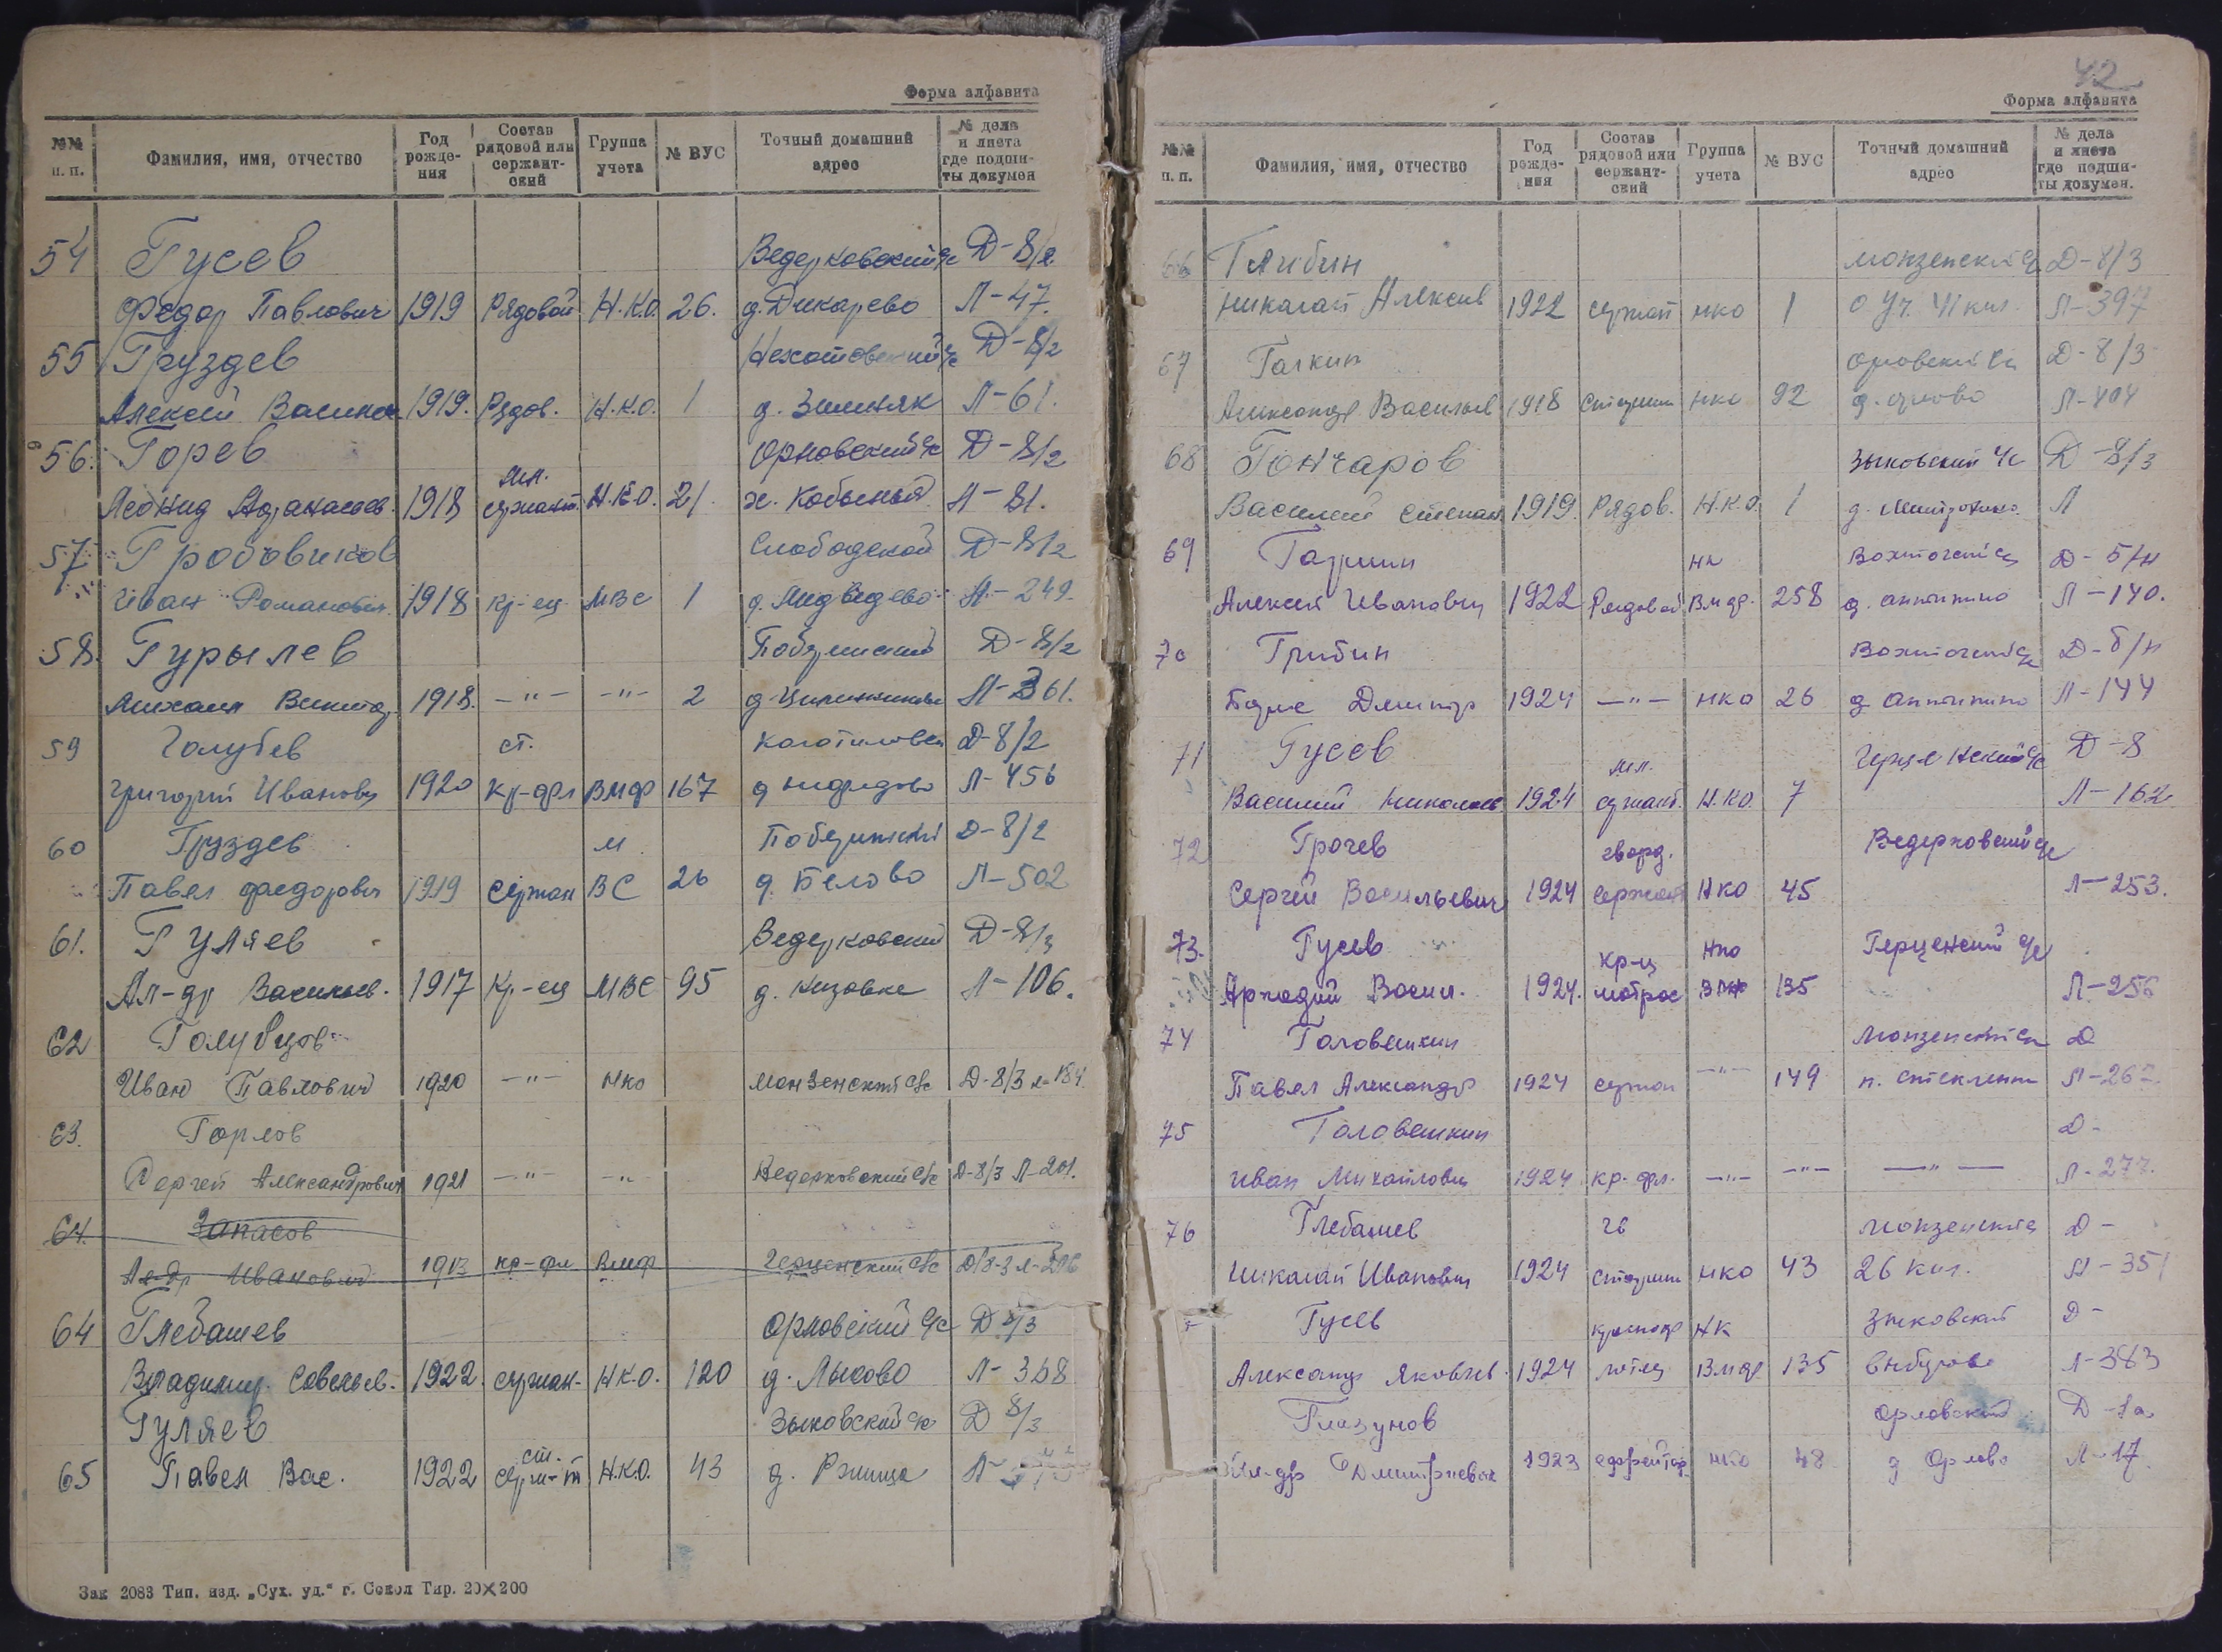 Форма алфавита
№№ п. п. Фамилия, имя, отчество Год рождения Состав рядовой или сержантский Группа учета № ВУС Точный домашний адрес № дела и листа где подшиты докумен
54 Гусев Ведерковский с/с Д-8/2
Федор Павлович 1919 Рядовой Н.К.О. 26. д. Дикарево Л-47.
55 Груздев Д-8/2
Алексей 1919. Рядов. Н.К.О. 1 д. Зимняк Л-61.
56. Горев Орловский с/с Д-8/2
мл.
Леонид Афанасьев. 1918 сержант. Н.К.О. 21. х. Кобылий Л-81.
57 Слободской Д-8/2
Иван Романович 1918 кр-ец МВС 1 д. Медведево Л-249.
58. Гурылев Д-8/2
Михаил 1918. -"- -"- 2 Л-361.
59 Голубев ст. Д-8/2
Григорий Иванович 1920 кр-фл ВМФ 167 Л-456
60 Груздев М Д-8/2
Павел Федорович 1919 Сержан ВС 26 д. Белово Л-502
61. Гуляев Ведерковский Д-8/3
Ал-др Васильев. 1917 Кр-ец МВС 95 д. Л-106.
62 Голубцов
Иван Павлович 1920 -"- НКО Монзенский с/с Д-8/3 л-184.
63. Горлов
Сергей Александрович 1921 -"- -"- Ведерковский с/с Д-8/3 Л-201.
64. Запасов
Ал-др Иванович 1913 кр-фл Вмф Герценский с/с Д/8-3 л-296
64 Глебашев Орловский с/с Д 8/3
Владимир Савельев. 1922. сержан- Н.К.О. 120 д. Лысово Л-368
Гуляев Зыковский с/с Д 8/3
ст.
65 Павел Вас. 1922 серж-т Н.К.О. 43 д. Ржища Л-
Зак 2083 Тип. изд. „Сух. уд.“ г. Сокол Тир. 20×200
42
Форма алфавита
№№ п. п. Фамилия, имя, отчество Год рождения Состав рядовой или сержантский Группа учета № ВУС Точный домашний адрес № дела и листа где подшиты докумен.
66 Грибин Монзенский с/с Д-8/3
Николай Алексеев 1922 сержант НКО 1 О Уч. 41 кил. Л-397
67 Галкин Орловский с/с Д-8/3
Александр Васильев 1918 Старшин НКО 92 Л-404
68 Гончаров Зыковский с/с Д-8/3
Василий Степан. 1919. Рядов. Н.К.О. 1 Л
69 НК Вохтогский с/с Д-5/н
Алексей Иванович 1922 Рядовой ВМФ. 258 д. Антипино Л-140.
70 Грибин Вохтогский с/с Д-б/н
Борис Дмитр 1924 -"- НКО 26 д Антипино Л-144
71 Гусев мл. Герценский с/с Д-8
Василий Николаев 1924 сержант. Н.КО. 7 Л-162
72 Грачев гвард. Ведерковский с/с
Сергей Васильевич 1924 сержант НКО 45 Л-253.
73. Гусев кр-ц НКО Герценский с/с
Аркадий Васил. 1924. матрос ВМФ 135 Л-256
74 Головешкин Монзенский с/с Д
Павел Александр 1924 сержан -"- 149 Л-26
75 Головешкин Д-
Иван Михайлович 1924 кр-фл. -"- -"- -"- Л-277.
76 Глебашев гв Монзенский с Д-
Николай Иванович 1924 старшин НКО 43 26 кил. Л-351
Гусев НК Зыковский Д-
Александр Яковлев. 1924 ВМФ 135 Л-383
Глазунов Орловский Д-1а
Ал-др Дмитриевич 1923 ефрейтор НКО 48 д Орлово Л-17